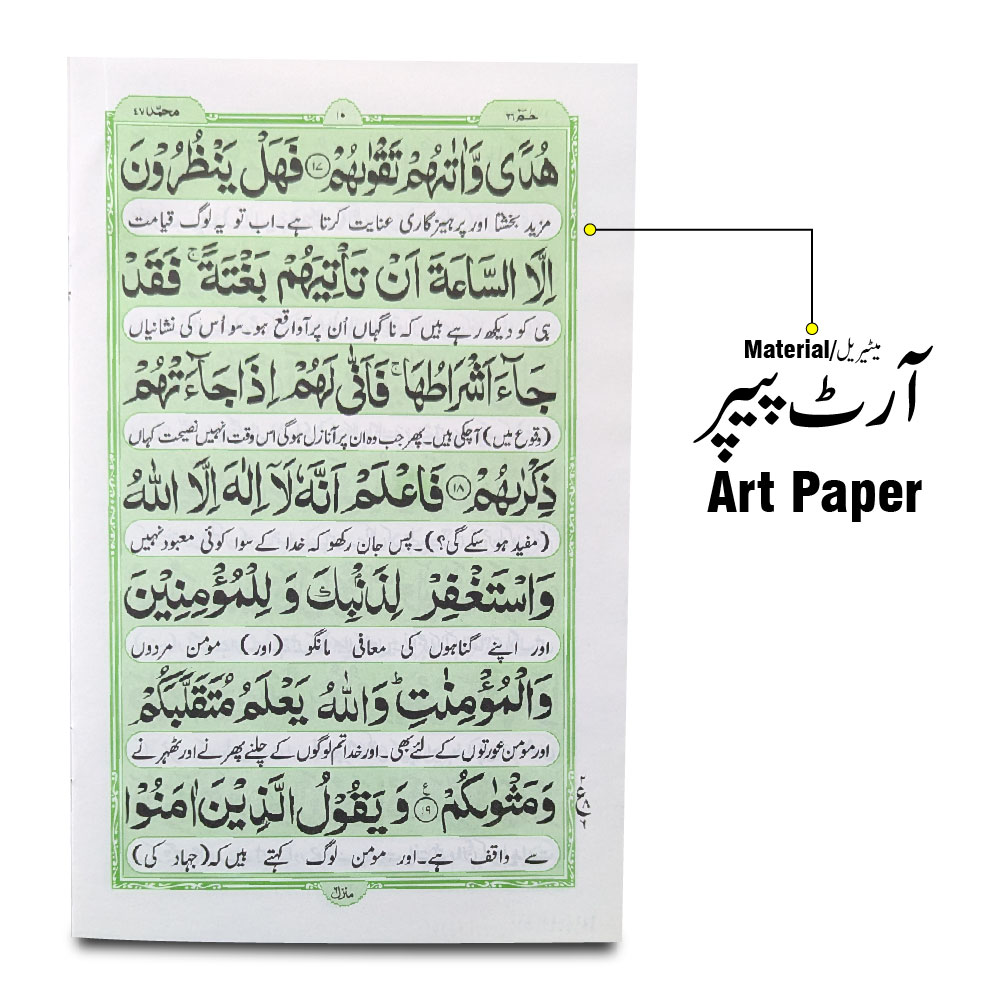 حٰمٓ ٢٦
١٠
محمّد ٤٧
هُدًى وَّاٰتٰىهُمْ تَقْوٰىهُمْ ١٧ فَهَلْ يَنْظُرُوْنَ
مزید بخشتا اور پرہیزگاری عنایت کرتا ہے۔ اب تو یہ لوگ قیامت
اِلَّا السَّاعَةَ اَنْ تَاْتِيَهُمْ بَغْتَةً ۚ فَقَدْ
ہی کو دیکھ رہے ہیں کہ ناگہاں اُن پر آ واقع ہو۔ سو اُس کی نشانیاں
جَآءَ اَشْرَاطُهَا ۚ فَاَنّٰى لَهُمْ اِذَا جَآءَتْهُمْ
(وقوع میں) آچکی ہیں۔ پھر جب وہ ان پر آ نازل ہوگی اس وقت انہیں نصیحت کہاں
ذِكْرٰىهُمْ ١٨ فَاعْلَمْ اَنَّهٗ لَآ اِلٰهَ اِلَّا اللّٰهُ
(مفید ہو سکے گی؟)۔ پس جان رکھو کہ خدا کے سوا کوئی معبود نہیں
وَاسْتَغْفِرْ لِذَنْۢبِكَ وَ لِلْمُؤْمِنِيْنَ
اور اپنے گناہوں کی معافی مانگو (اور) مومن مردوں
وَالْمُؤْمِنٰتِ ؕ وَاللّٰهُ يَعْلَمُ مُتَقَلَّبَكُمْ
اور مومن عورتوں کے لئے بھی۔ اور خدا تم لوگوں کے چلنے پھرنے اور ٹھہرنے
وَمَثْوٰىكُمْ ١٩ ع وَ يَقُوْلُ الَّذِيْنَ اٰمَنُوْا
٢
ع ٨
٦
سے واقف ہے۔ اور مومن لوگ کہتے ہیں کہ (جہاد کی)
منزل ٦
Material/میٹیریل
آرٹ پیپر
Art Paper